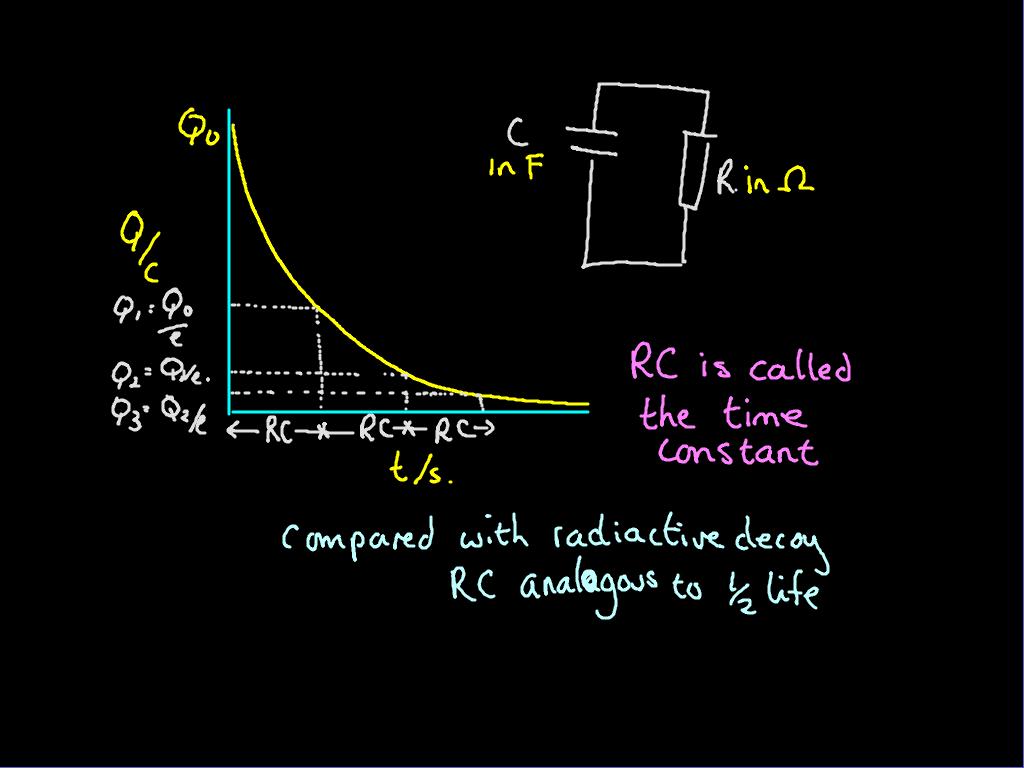 Q₀
C
in F
R. in Ω
Q/C
Q₁ = Q₀/e
Q₂ = Q₁/e.
Q₃ = Q₂/e
RC RC RC
t/s.
RC is called
the time
constant
compared with radiactive decay
RC analogous to ½ life